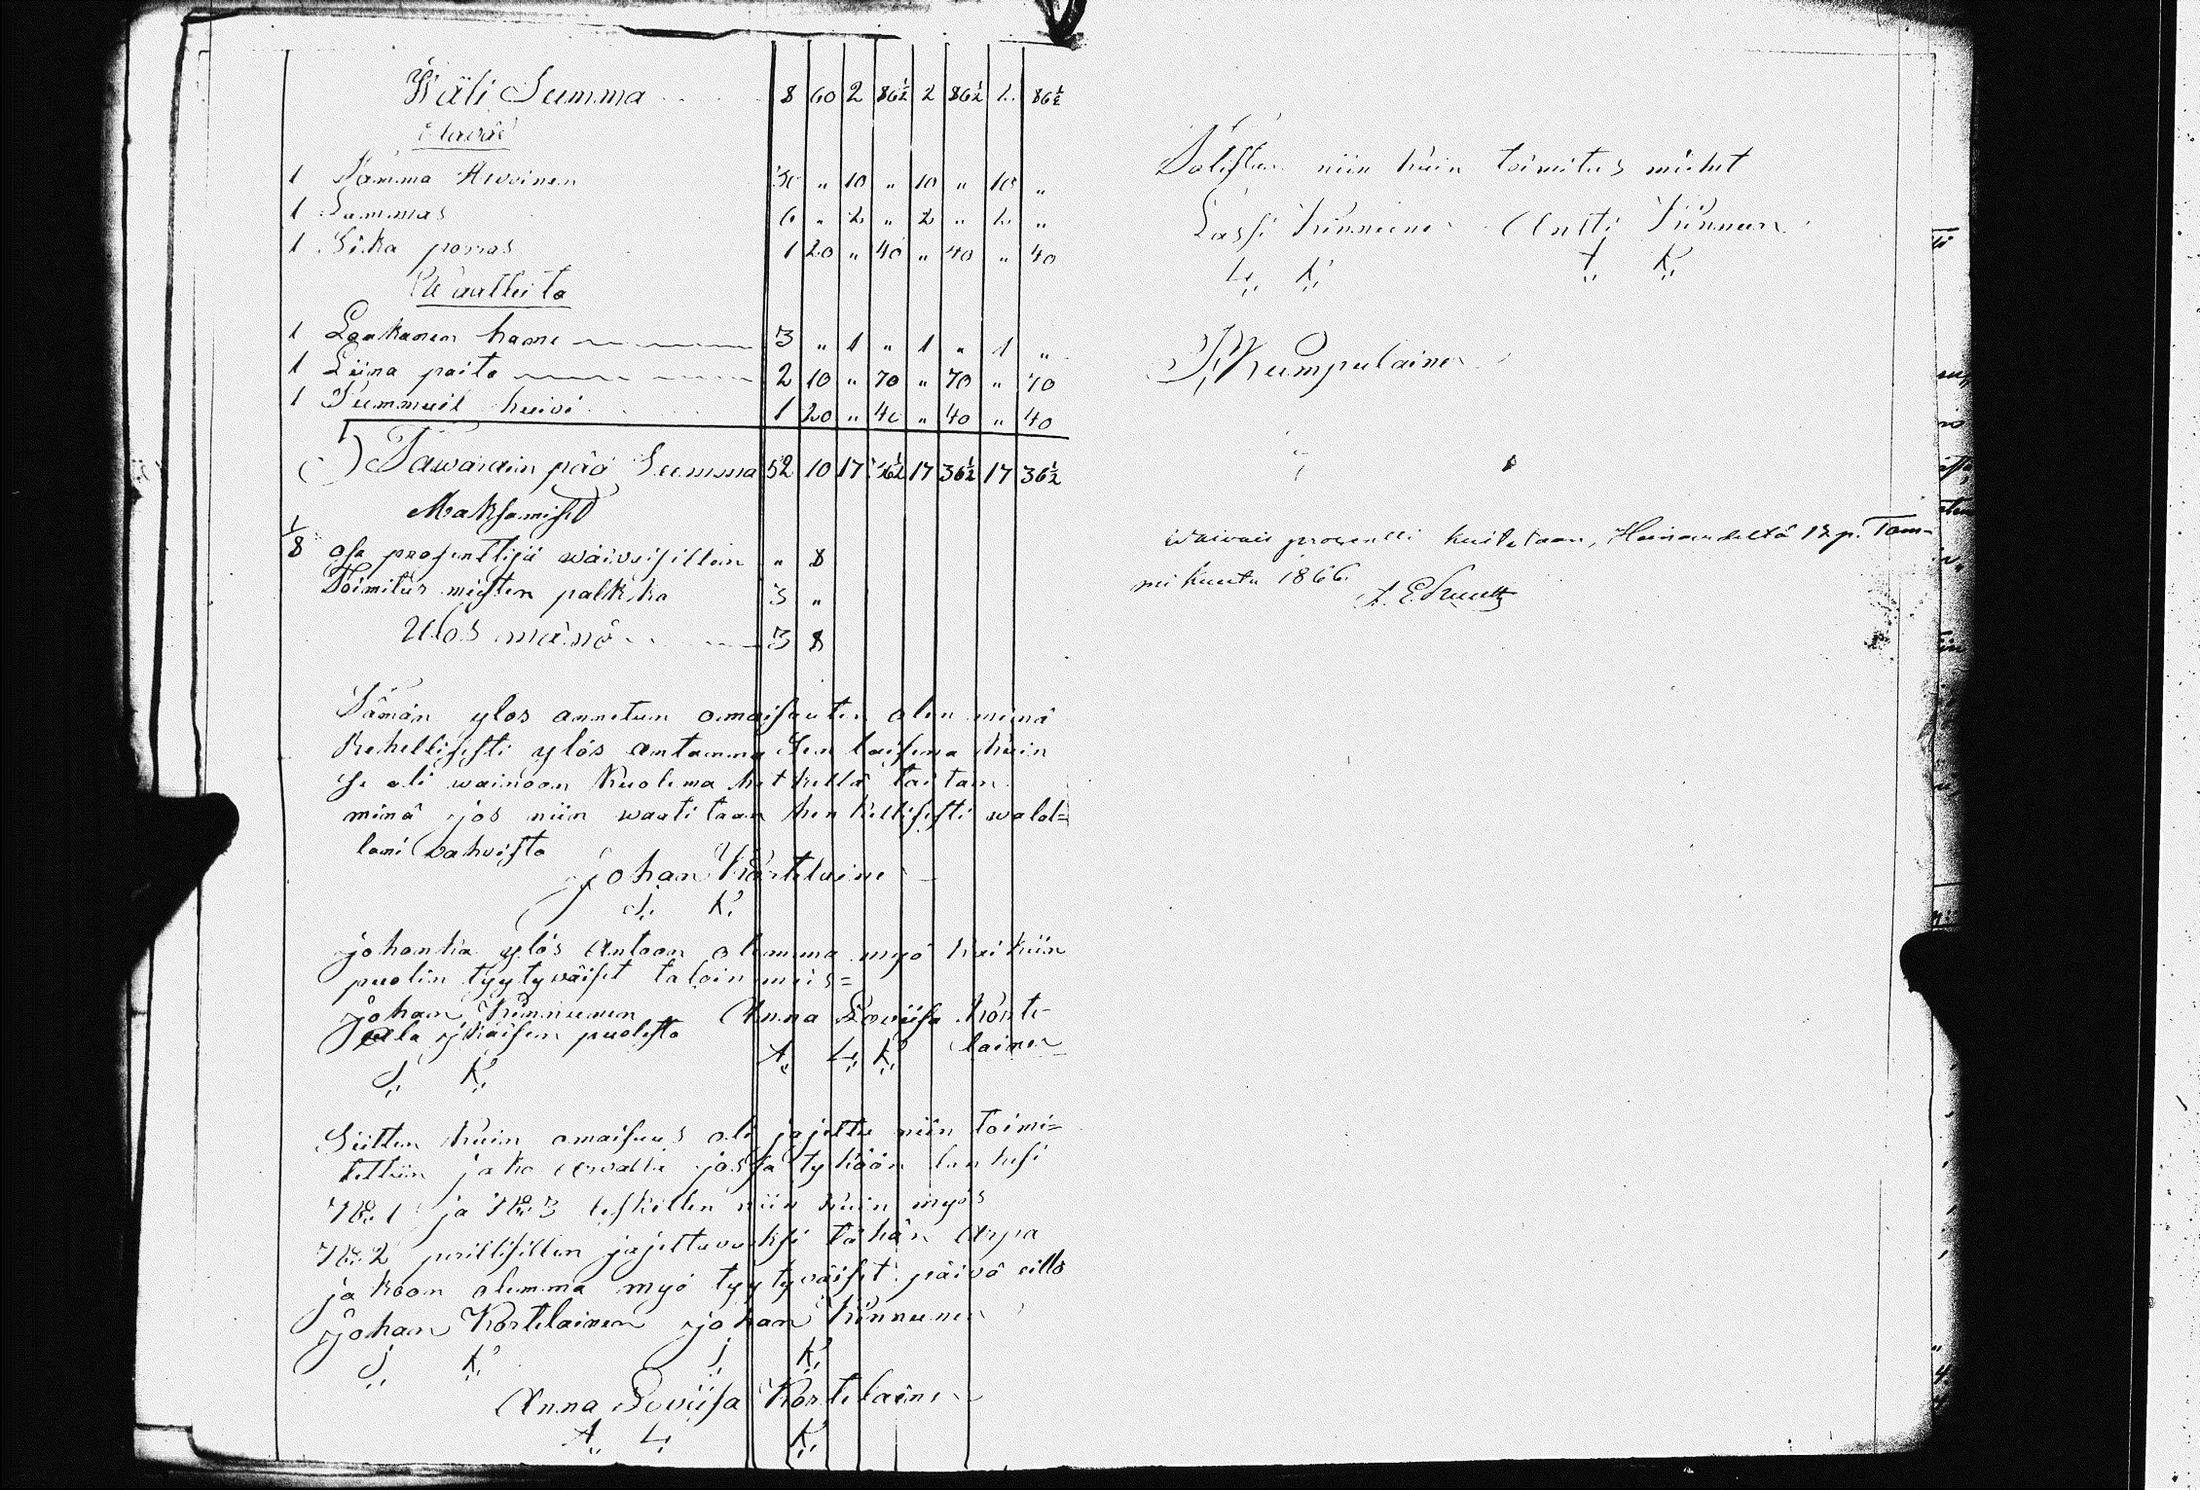 Wäli Summa 8 60 2 86½ 2 86½ 2 86½
Elävät
1 Tamma Hevoinen 30 " 10 " 10 " 10 "
1 Lammas 6 " 2 " 2 " 2 "
1 Sika porsas 1 20 " 40 " 40 " 40
Waatteita
1 Laakanen hame 3 " 1 " 1 " 1 "
1 Liina paita 2 10 " 70 " 70 " 70
1 Summuil huivi 1 20 " 40 " 40 " 40
Tawarain pää Summa 52 10 17 36½ 17 36½ 17 36½
Maksamiset
1/8 osa prosenttijä wäivaisillen " 8
Toimitus miesten palkka 3 "
Ulos mänö 3 8
Tämän ylös annetun omaisuuten olen minä
Rehellisesti ylös antanna sen laisena kuin
se oli wainoon kuolema hetkellä taitan
minä jos niin waatitaan henkellisesti walal=
lani vahvista
Johan Kortelaine
J. K.
johonka ylös Antoon olemma myö kaikiin
puolin tyytywäiset taloin meis=
Johan Kinnunen Anna Loviisa Korte-
Ala ijkäisen puolesta lainen
J. K. A. L. K.
Siitten kuin omaisuus oli jajettu niin toimi=
tettiin jako Arvalla jossa tyköön lankesi
No. 1 ja No. 3 leskellen niin kuin myös
No. 2 perillisillen jajettavaksi tähän Arpa
jakoon olemma myö tyytyväiset päivä ellä
Johan Kortelainen Johan Kinnunen
J. K. J. K.
Anna Loviisa Kortelainen
A. L. K.
Todistaa niin kuin toimitus miehet
Lassi Kinnunen Antti Kinnunen
L. K. A. K.
Kumpulainen
Waivais prosentti kuitetaan, Heinäudelta 12 p. Tam-
mi kuuta 1866.